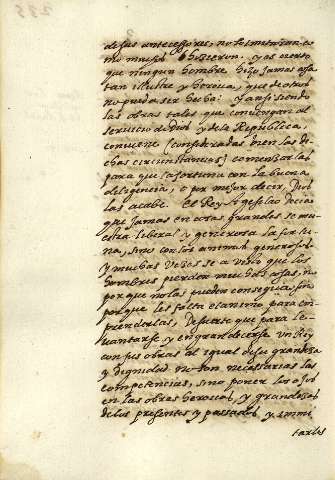 de sus antecessores, no los imitan co
mo muchos hizieron. y es cierto
que ningun hombre hizo jamas cosa
tan illustre y heroica, que de otro
no pueda ser hecha: y ansi siendo
las obras tales que convengan al
servicio de Dios y de la Republica,
conviene (consideradas bien las di
chas circunstancias) comenzarlas
para que la fortuna con la buena
diligencia, o por mejor decir, Dios
las acabe. El Rey Agesilao decia
que jamas en cosas grandes se mu
estra liberal y generosa la fortu
na, sino con los animos generosos
y muchas vezes se a visto que los
hombres pierden muchas cosas, no
por que no las pueden conseguir, sino
por que les falta el animo para em
prenderlas, De suerte que para le
vantarse y engrandecerse un Rey
con sus obras al igual de su grandeza
y dignidad no son necessarias las
competencias, sino poner los ojos
en las obras heroicas, y grandezas
de los presentes y passados y immi
tarles